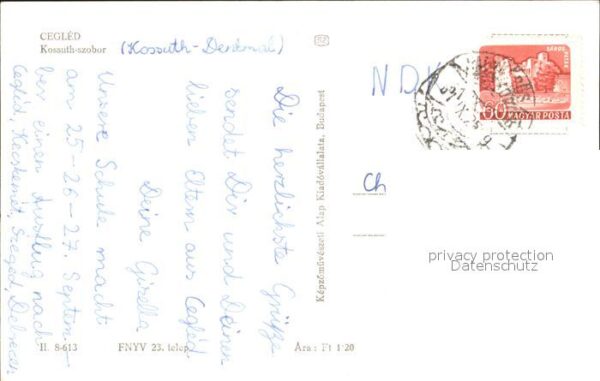 CEGLÉD
Kossuth-szobor (Kossuth-Denkmal)
Die herzlichste Grüße
sendet Dir und Deinen
lieben Eltern aus Cegléd
Deine Gizella
Unsere Schule macht
am 25-26-27. Septem-
ber einen Ausflug nach
Cegléd, Kecskemét, Szeged, Debrecen
II. 8-613
FNYV 23. telep
Ára: Ft 1·20
Képzőművészeti Alap Kiadóvállalata, Budapest
NDK
Ch
60 MAGYAR POSTA
privacy protection
Datenschutz